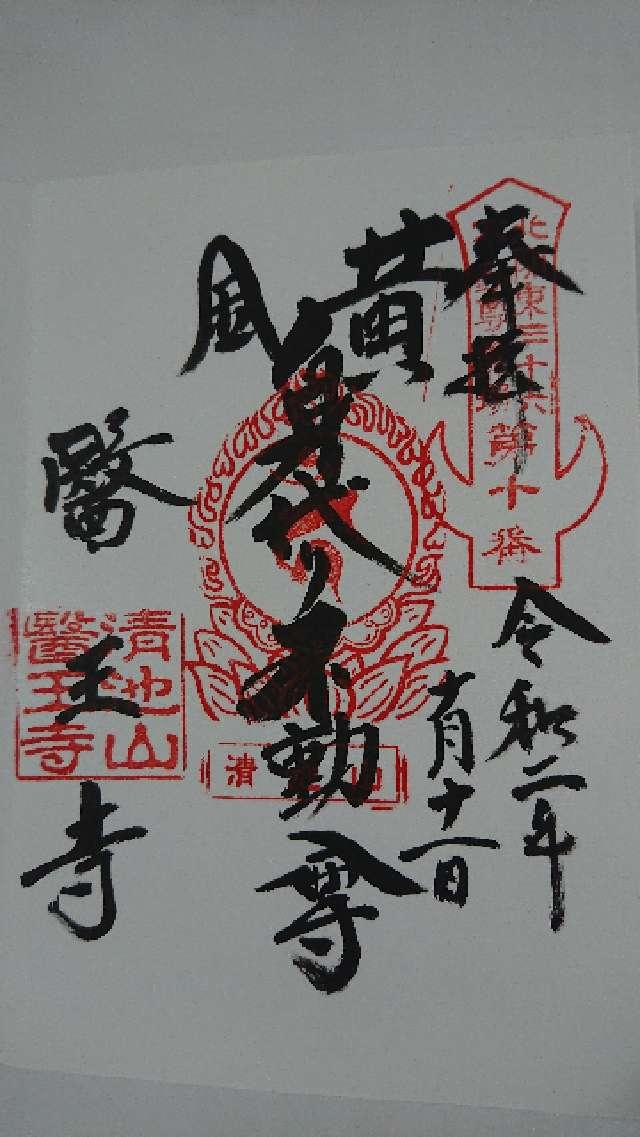 奉拝
北関東三十六
不動尊霊場
第十番
令和二年
十月十一日
黄
身代り不動尊
風
清滝山
醫王寺
清地山
醫王寺